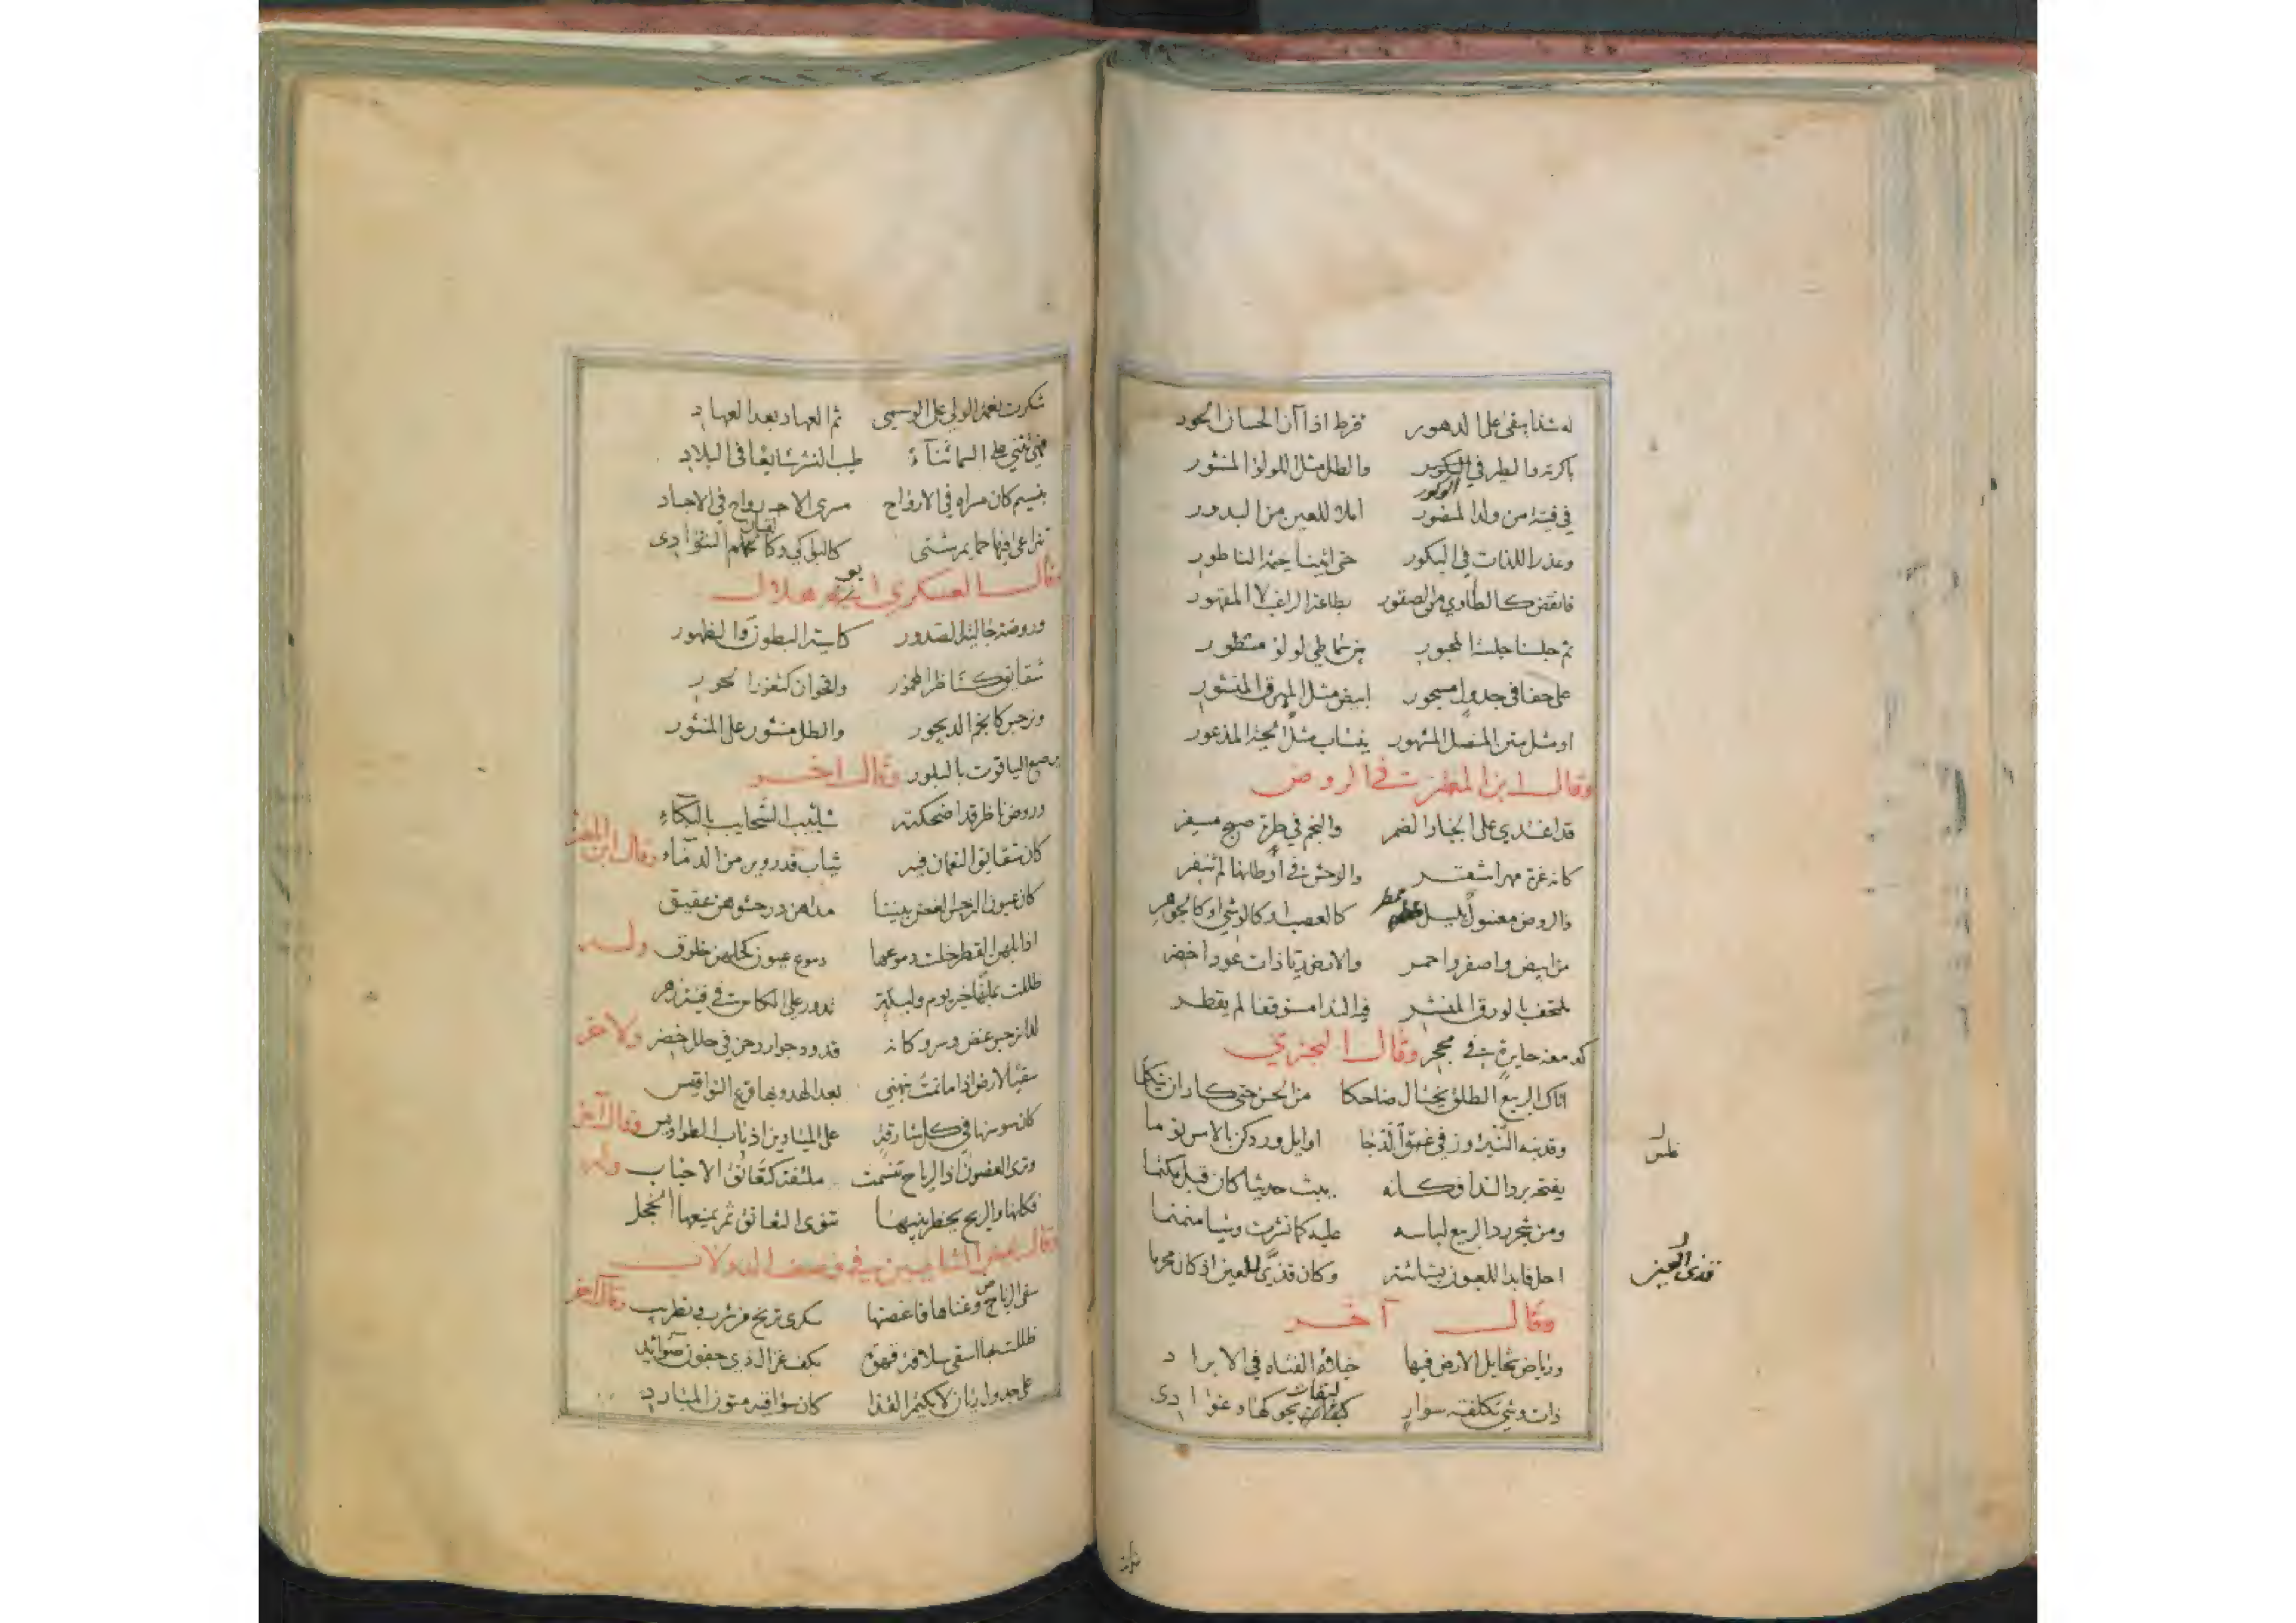 له شذا يبقى على الدهور فرط اذا آن الحسان الحور
باكرته والطير في الوكور والطل مثل اللولؤ المنثور
في فتية من ولد المنصور املا للعين من البدور
وعذر اللذات في البكور حتى اتينا خيمة الناطور
فانقض كالطاوي من الصقور بطاعة الراغب لا المقهور
ثم جلسنا جلسة المحبور بين سماطي لولو منظور
على حفافي جدول مسجور ابيض مثل المهرق المنشور
او مثل متن المنصل المشهور ينساب مثل الحية المذعور
وقال ابن المعتز في الروض
قد اغتدي على الجياد الضمر والنجم في طرة صبح مسفر
كانه غرة مهر اشقر والوحش في اوطانها لم تنفر
والروض مغسول بليل ممطر كالعصب او كالوشي او كالجوهر
من ابيض واصفر واحمر والارض ريا ذات عود اخضر
ملتحف بالورق المنشر فيه الندا مستوقفا لم يقطر
كدمعة حايرة في محجر وقال البحتري
اتاك الربيع الطلق يختال ضاحكا من الحسن حتى كاد ان يتكلما
وقد نبه النيروز في غسق الدجا اوايل ورد كن بالامس نوما
يفتحه برد الندا فكانه يبث حديثا كان قبل مكتما
ومن شجر رد الربيع لباسه عليه كما نشرت وشيا منمنما
احل فابدا للعيون بشاشة وكان قذى للعين اذ كان محرما
وقال آخر
ورياض تخايل الارض فيها خيلاء الفتاة في الابراد
ذات وشي تكلفته سوار لبقات بحوكها وغوادى
قذى العين
شكرت نعمة الولي على الوسمى ثم العهاد بعد العهاد
فهي تثني على السماء ثناء طيب النشر شايعا في البلاد
بنسيم كان مسراه في الارواح مسرى الارواح في الاجساد
تتداعى فيها حمايم شتى كالبواكي وكالقيان النوادى
وقال العسكري ابو هلال
وروضة حالية الصدور كاسية البطون والظهور
شقائق كناظر المخمور واقحوان كثغور الحور
ونرجس كانجم الديجور والطل منثور على المنثور
يرصع الياقوت بالبلور وقال اخر
وروض ناظر قد اضحكته شآبيب السحايب بالبكاء
كان شقايق النعمان فيه ثياب قد روين من الدماء وقال ابن المعتز
كان عيون النرجس الغض بيننا مداهن در حشوهن عقيق
اذا بلهن القطر خلت دموعها دموع عيون كحلهن خلوق وله
ظللت بملهى خير يوم وليلة تدور علي الكاس في فتية زهر
لدا نرجس غض وسرو كانه قدود جوار رحن في حلل خضر ولاخر
سقيا لارض اذا ما نمت نبهني بعد الهدو بها قرع النواقيس
كان سوسنها في كل شارقة على الميادين اذناب الطواويس وقال آخر
وترى الغصون اذا الرياح تنسمت ملتفة كتعانق الاحباب وله
فكانها والريح يخطر بينها تنوى التعانق ثم يمنعها الخجل
وقال بعض الشاميين في وصف الدولاب
سقى الرياض وغناها فاغصنها سكرى ترنح من شرب وتطريب وقال آخر
ظللت بها اسقى سلافة قهوة بكف غزال ذي جفون صوائد
على جدول ريان لا يكتم القذا كان سواقيه متون المبارد